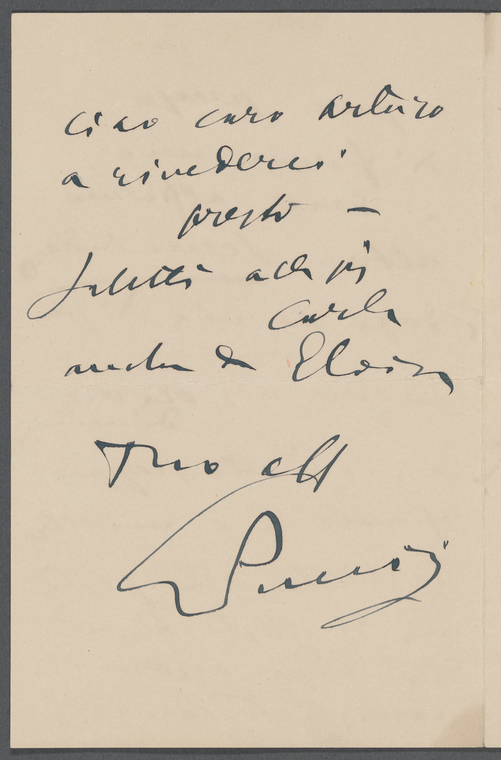 ciao caro Arturo
a rivederci
presto –
saluti alla pi
Carla
anche da Elvira
Tuo aff
Puccini